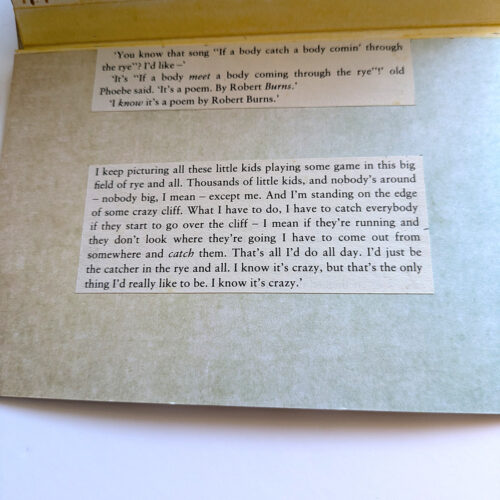 ‘You know that song “If a body catch a body comin’ through
the rye”? I’d like –’
‘It’s “If a body meet a body coming through the rye”!’ old
Phoebe said. ‘It’s a poem. By Robert Burns.’
‘I know it’s a poem by Robert Burns.’
I keep picturing all these little kids playing some game in this big
field of rye and all. Thousands of little kids, and nobody’s around
– nobody big, I mean – except me. And I’m standing on the edge
of some crazy cliff. What I have to do, I have to catch everybody
if they start to go over the cliff – I mean if they’re running and
they don’t look where they’re going I have to come out from
somewhere and catch them. That’s all I’d do all day. I’d just be
the catcher in the rye and all. I know it’s crazy, but that’s the only
thing I’d really like to be. I know it’s crazy.’